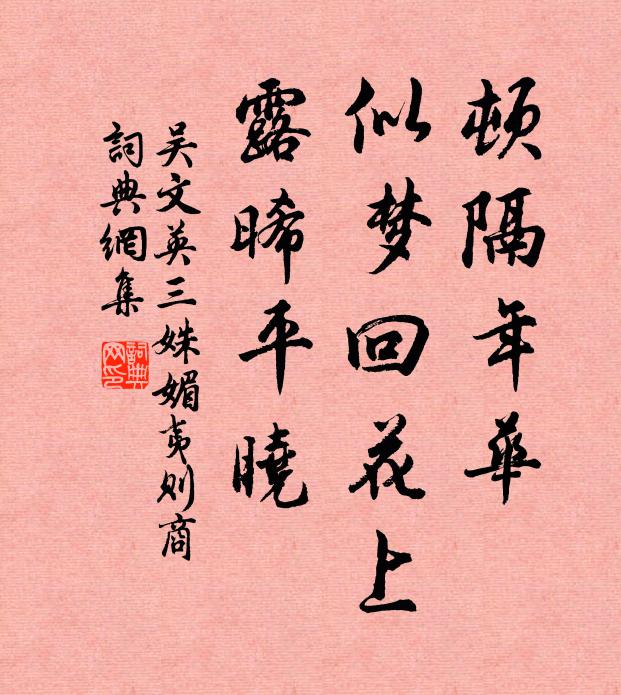 頓隔年華
似梦回花上
露晞平曉
吴文英三姝媚夷则商
詞典網集
詞典網印